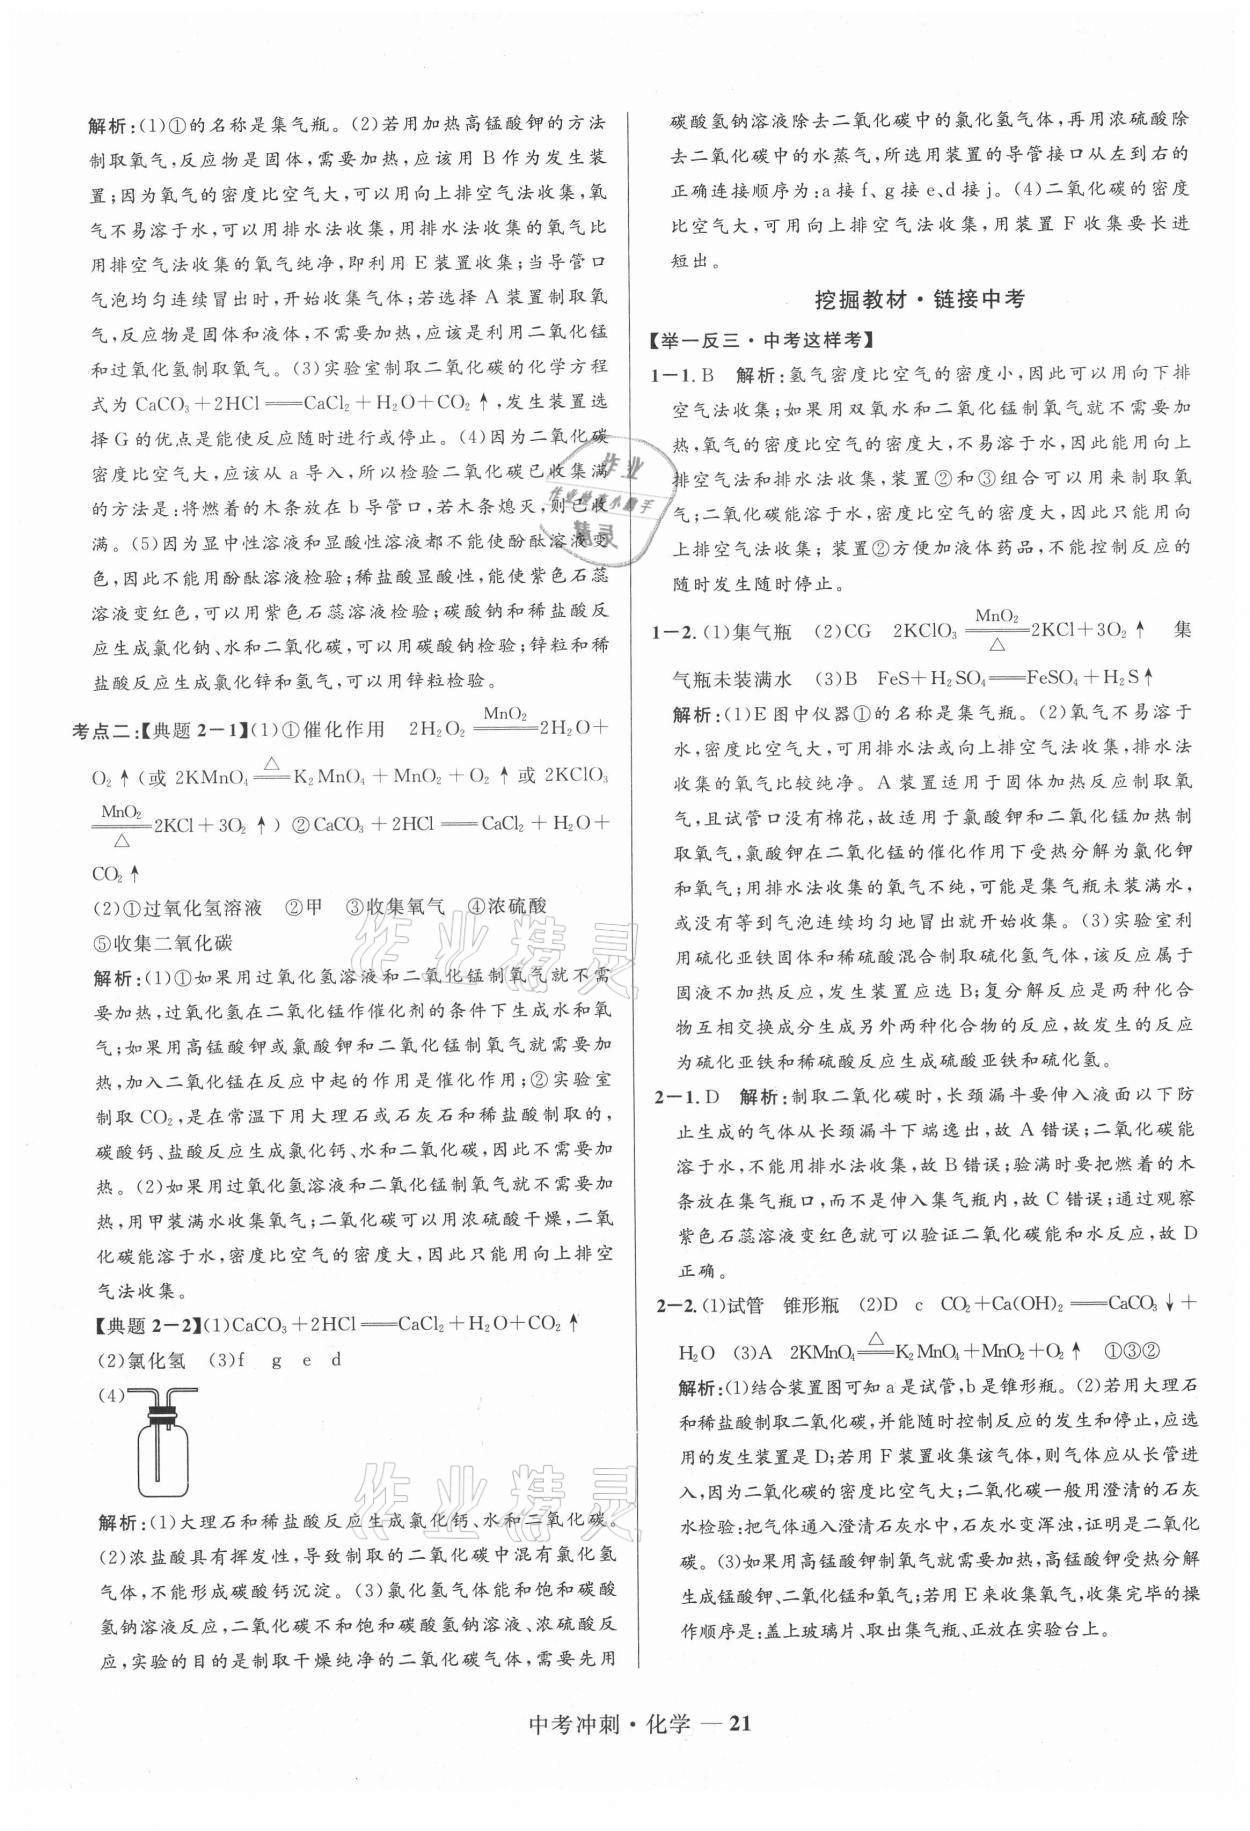 解析:(1)①的名称是集气瓶。(2)若用加热高锰酸钾的方法
制取氧气,反应物是固体,需要加热,应该用 B 作为发生装
置;因为氧气的密度比空气大,可以用向上排空气法收集,氧
气不易溶于水,可以用排水法收集,用排水法收集的氧气比
用排空气法收集的氧气纯净,即利用 E 装置收集;当导管口
气泡均匀连续冒出时,开始收集气体;若选择 A 装置制取氧
气,反应物是固体和液体,不需要加热,应该是利用二氧化锰
和过氧化氢制取氧气。(3)实验室制取二氧化碳的化学方程
式为 CaCO₃+2HCl══CaCl₂+H₂O+CO₂↑,发生装置选
择 G 的优点是能使反应随时进行或停止。(4)因为二氧化碳
密度比空气大,应该从 a 导入,所以检验二氧化碳已收集满
的方法是:将燃着的木条放在 b 导管口,若木条熄灭,则已收
满。(5)因为显中性溶液和显酸性溶液都不能使酚酞溶液变
色,因此不能用酚酞溶液检验;稀盐酸显酸性,能使紫色石蕊
溶液变红色,可以用紫色石蕊溶液检验;碳酸钠和稀盐酸反
应生成氯化钠、水和二氧化碳,可以用碳酸钠检验;锌粒和稀
盐酸反应生成氯化锌和氢气,可以用锌粒检验。
考点二:【典题 2-1】(1)①催化作用 2H₂O₂ MnO₂══2H₂O+
O₂↑(或 2KMnO₄ △══K₂MnO₄+MnO₂+O₂↑或 2KClO₃
MnO₂══△ 2KCl+3O₂↑) ②CaCO₃+2HCl══CaCl₂+H₂O+
CO₂↑
(2)①过氧化氢溶液 ②甲 ③收集氧气 ④浓硫酸
⑤收集二氧化碳
解析:(1)①如果用过氧化氢溶液和二氧化锰制氧气就不需
要加热,过氧化氢在二氧化锰作催化剂的条件下生成水和氧
气;如果用高锰酸钾或氯酸钾和二氧化锰制氧气就需要加
热,加入二氧化锰在反应中起的作用是催化作用;②实验室
制取 CO₂,是在常温下用大理石或石灰石和稀盐酸制取的,
碳酸钙、盐酸反应生成氯化钙、水和二氧化碳,因此不需要加
热。(2)如果用过氧化氢溶液和二氧化锰制氧气就不需要加
热,用甲装满水收集氧气;二氧化碳可以用浓硫酸干燥,二氧
化碳能溶于水,密度比空气的密度大,因此只能用向上排空
气法收集。
【典题 2-2】(1)CaCO₃+2HCl══CaCl₂+H₂O+CO₂↑
(2)氯化氢 (3)f g e d
(4)
解析:(1)大理石和稀盐酸反应生成氯化钙、水和二氧化碳。
(2)浓盐酸具有挥发性,导致制取的二氧化碳中混有氯化氢
气体,不能形成碳酸钙沉淀。(3)氯化氢气体能和饱和碳酸
氢钠溶液反应,二氧化碳不和饱和碳酸氢钠溶液、浓硫酸反
应,实验的目的是制取干燥纯净的二氧化碳气体,需要先用
碳酸氢钠溶液除去二氧化碳中的氯化氢气体,再用浓硫酸除
去二氧化碳中的水蒸气,所选用装置的导管接口从左到右的
正确连接顺序为:a 接 f、g 接 e、d 接 j。(4)二氧化碳的密度
比空气大,可用向上排空气法收集,用装置 F 收集要长进
短出。
挖掘教材·链接中考
【举一反三·中考这样考】
1-1. B 解析:氢气密度比空气的密度小,因此可以用向下排
空气法收集;如果用双氧水和二氧化锰制氧气就不需要加
热,氧气的密度比空气的密度大,不易溶于水,因此能用向上
排空气法和排水法收集,装置②和③组合可以用来制取氧
气;二氧化碳能溶于水,密度比空气的密度大,因此只能用向
上排空气法收集;装置②方便加液体药品,不能控制反应的
随时发生随时停止。
1-2. (1)集气瓶 (2)CG 2KClO₃ MnO₂══△ 2KCl+3O₂↑ 集
气瓶未装满水 (3)B FeS+H₂SO₄══FeSO₄+H₂S↑
解析:(1)E 图中仪器①的名称是集气瓶。(2)氧气不易溶于
水,密度比空气大,可用排水法或向上排空气法收集,排水法
收集的氧气比较纯净。A 装置适用于固体加热反应制取氧
气,且试管口没有棉花,故适用于氯酸钾和二氧化锰加热制
取氧气,氯酸钾在二氧化锰的催化作用下受热分解为氯化钾
和氧气;用排水法收集的氧气不纯,可能是集气瓶未装满水,
或没有等到气泡连续均匀地冒出就开始收集。(3)实验室利
用硫化亚铁固体和稀硫酸混合制取硫化氢气体,该反应属于
固液不加热反应,发生装置应选 B;复分解反应是两种化合
物互相交换成分生成另外两种化合物的反应,故发生的反应
为硫化亚铁和稀硫酸反应生成硫酸亚铁和硫化氢。
2-1. D 解析:制取二氧化碳时,长颈漏斗要伸入液面以下防
止生成的气体从长颈漏斗下端逸出,故 A 错误;二氧化碳能
溶于水,不能用排水法收集,故 B 错误;验满时要把燃着的木
条放在集气瓶口,而不是伸入集气瓶内,故 C 错误;通过观察
紫色石蕊溶液变红色就可以验证二氧化碳能和水反应,故 D
正确。
2-2. (1)试管 锥形瓶 (2)D c CO₂+Ca(OH)₂══CaCO₃↓+
H₂O (3)A 2KMnO₄ △══K₂MnO₄+MnO₂+O₂↑ ①③②
解析:(1)结合装置图可知 a 是试管,b 是锥形瓶。(2)若用大理石
和稀盐酸制取二氧化碳,并能随时控制反应的发生和停止,应选
用的发生装置是 D;若用 F 装置收集该气体,则气体应从长管进
入,因为二氧化碳的密度比空气大;二氧化碳一般用澄清的石灰
水检验:把气体通入澄清石灰水中,石灰水变浑浊,证明是二氧化
碳。(3)如果用高锰酸钾制氧气就需要加热,高锰酸钾受热分解
生成锰酸钾、二氧化锰和氧气;若用 E 来收集氧气,收集完毕的操
作顺序是:盖上玻璃片、取出集气瓶、正放在实验台上。
中考冲刺·化学 — 21
作业精灵
作业精灵
作业
精灵